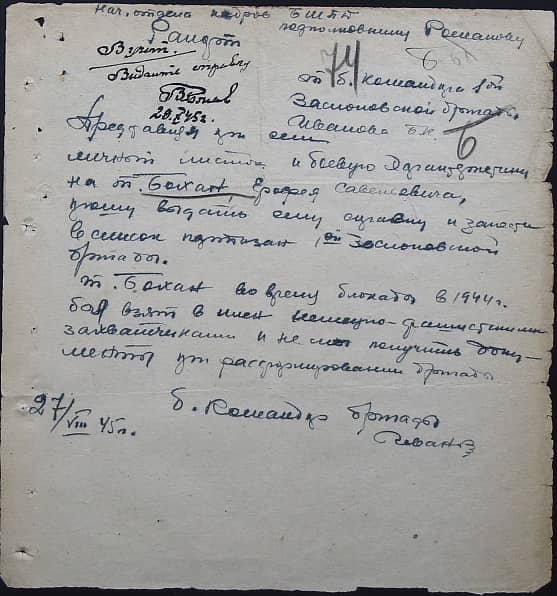 Нач. отдела кадров БШПД
подполковнику Романову
Рапорт
74
Б
Выдайте справку
29.X.45г.
т б. командира 1ой
Заслоновской бригады
Иванова
6
Представляя при сем
личный листок и боевую характеристику
на т. Бохан, Ерофея Савельевича,
прошу выдать ему справку и занести
в список партизан 1ой Заслоновской
бригады.
т. Бохан во время блокады в 1944г.
был взят в плен немецко-фашистскими
захватчиками и не мог получить доку-
менты при расформировании бригады
27/VIII 45г.
б. Командир бригады
Иванов